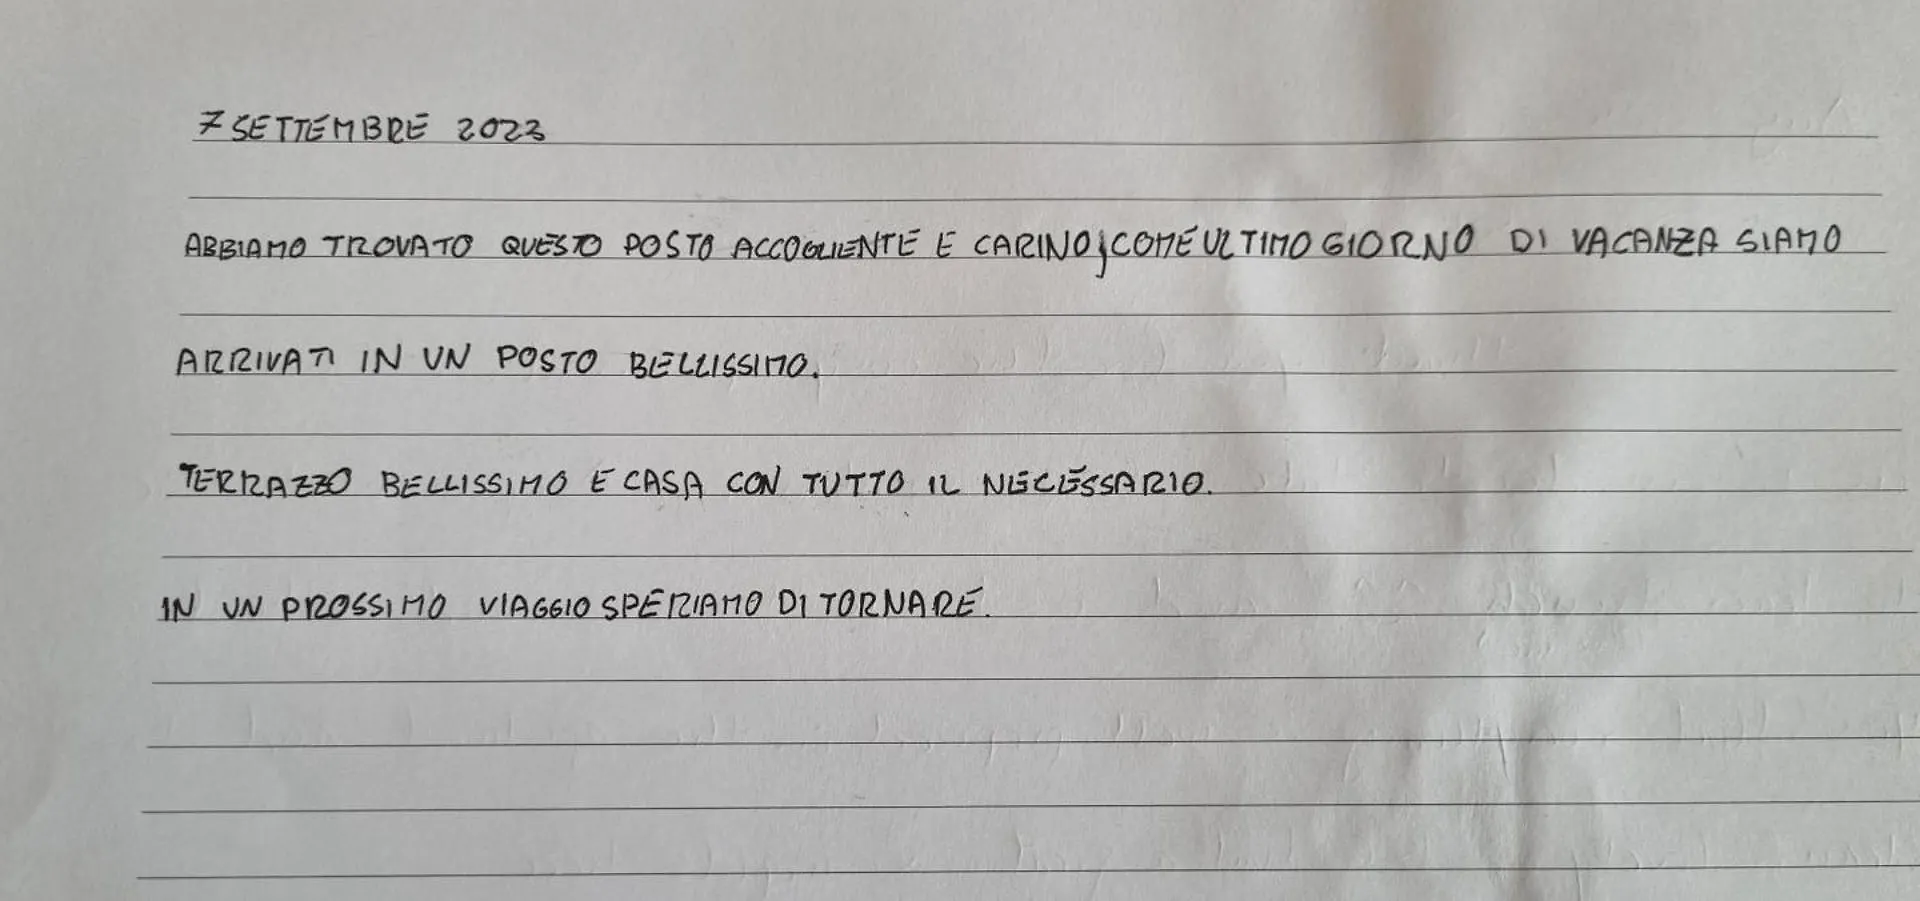 7 SETTEMBRE 2023
ABBIAMO TROVATO QUESTO POSTO ACCOGLIENTE E CARINO, COME ULTIMO GIORNO DI VACANZA SIAMO
ARRIVATI IN UN POSTO BELLISSIMO.
TERRAZZO BELLISSIMO E CASA CON TUTTO IL NECESSARIO.
IN UN PROSSIMO VIAGGIO SPERIAMO DI TORNARE.